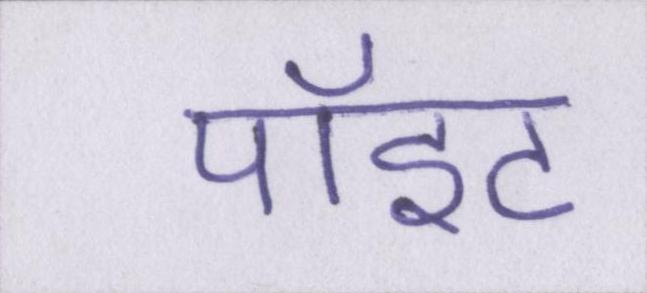 पॉइट